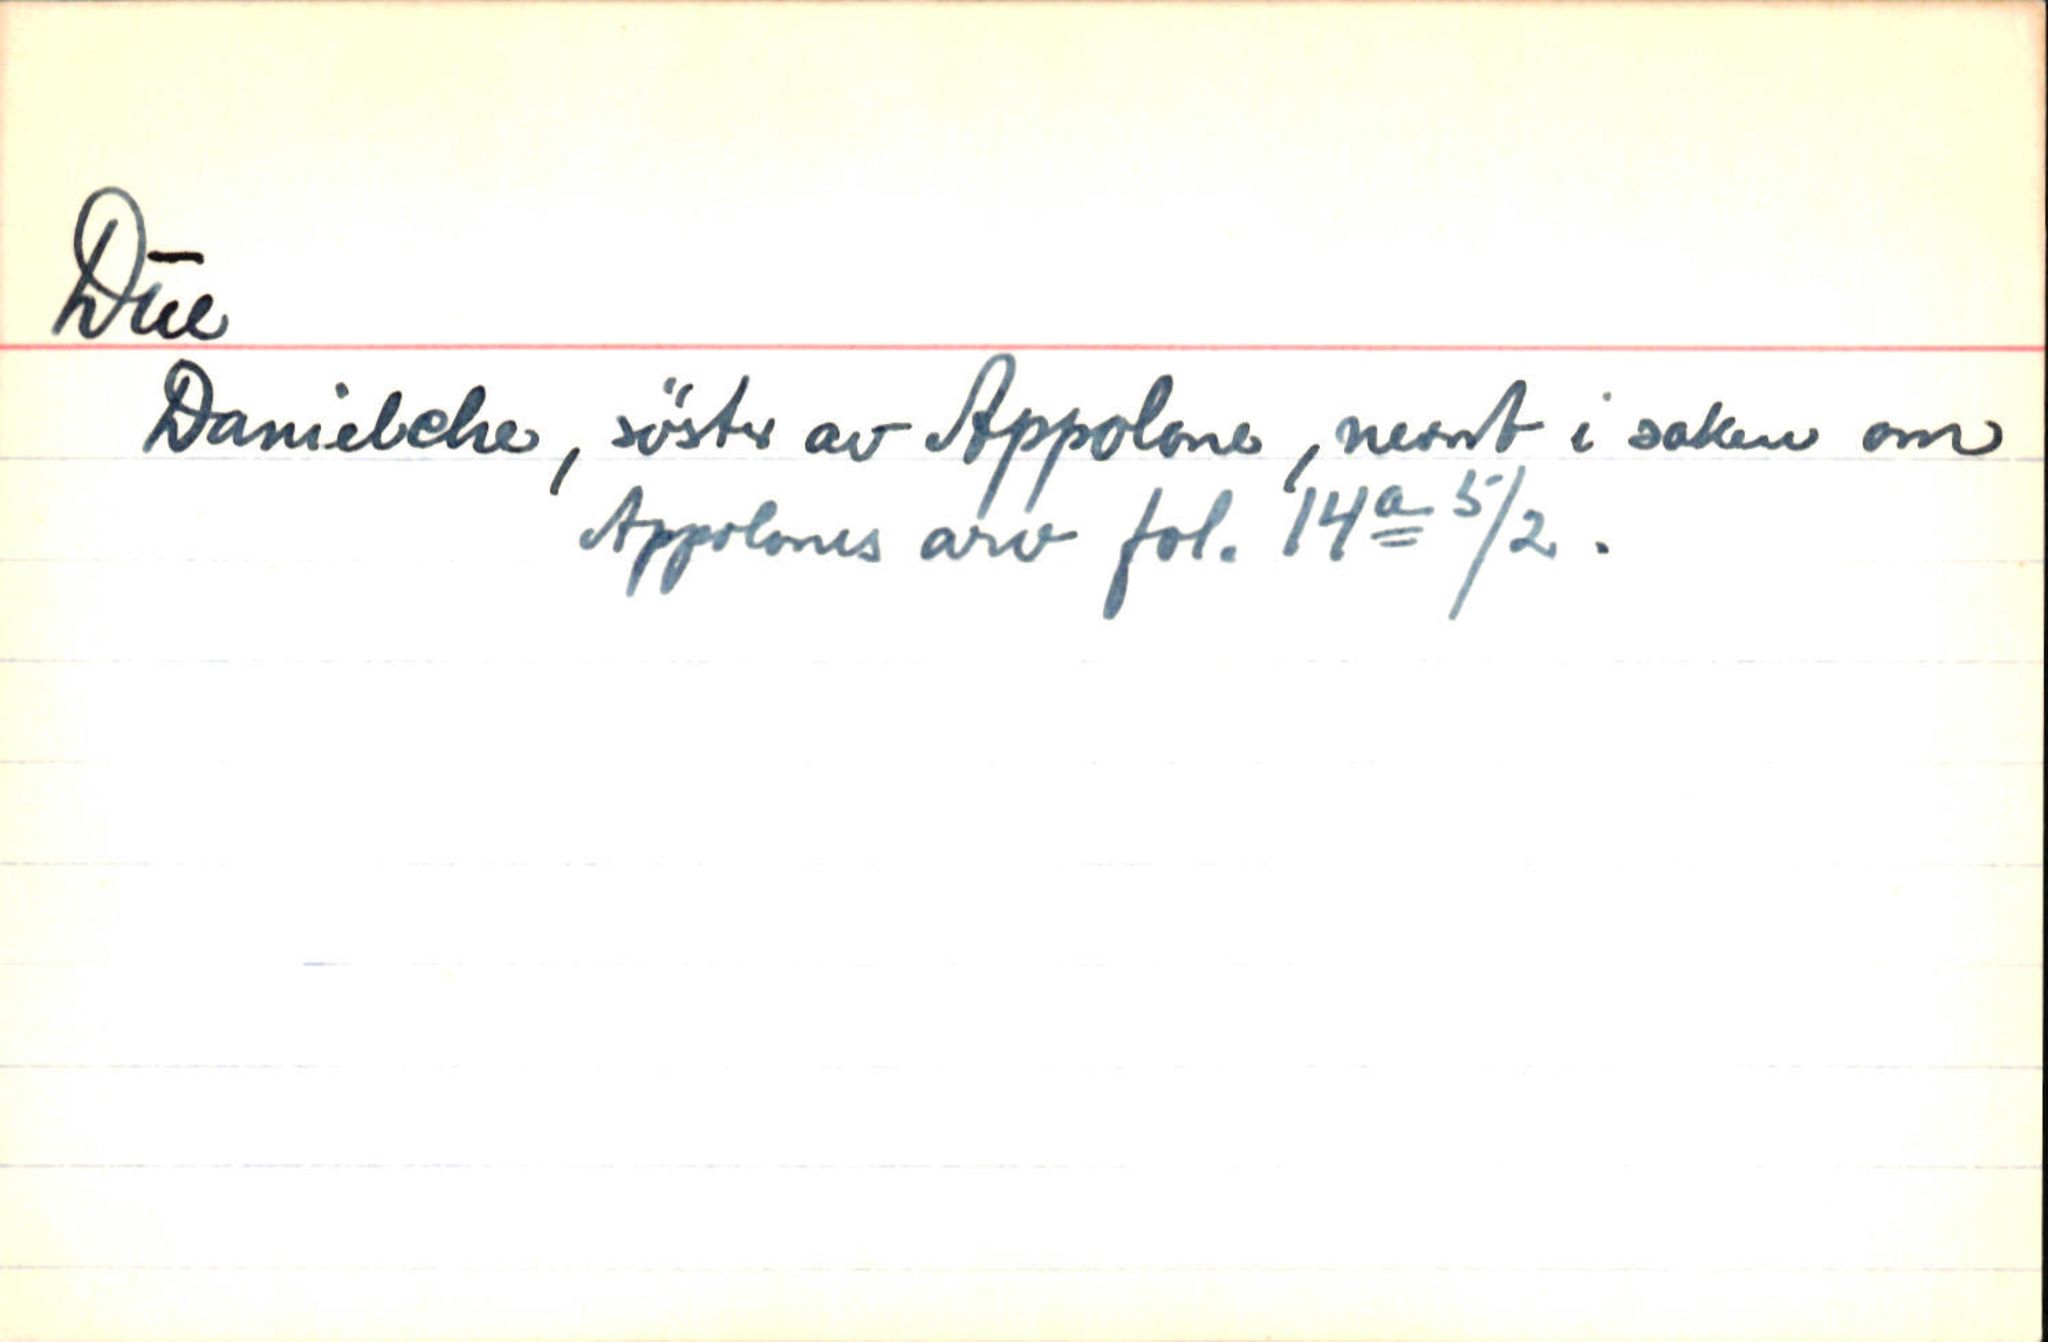 Dūe
Danielche, söster av Appolone, nevnt i saken om
Appolones arv fol. 14a 5/2.